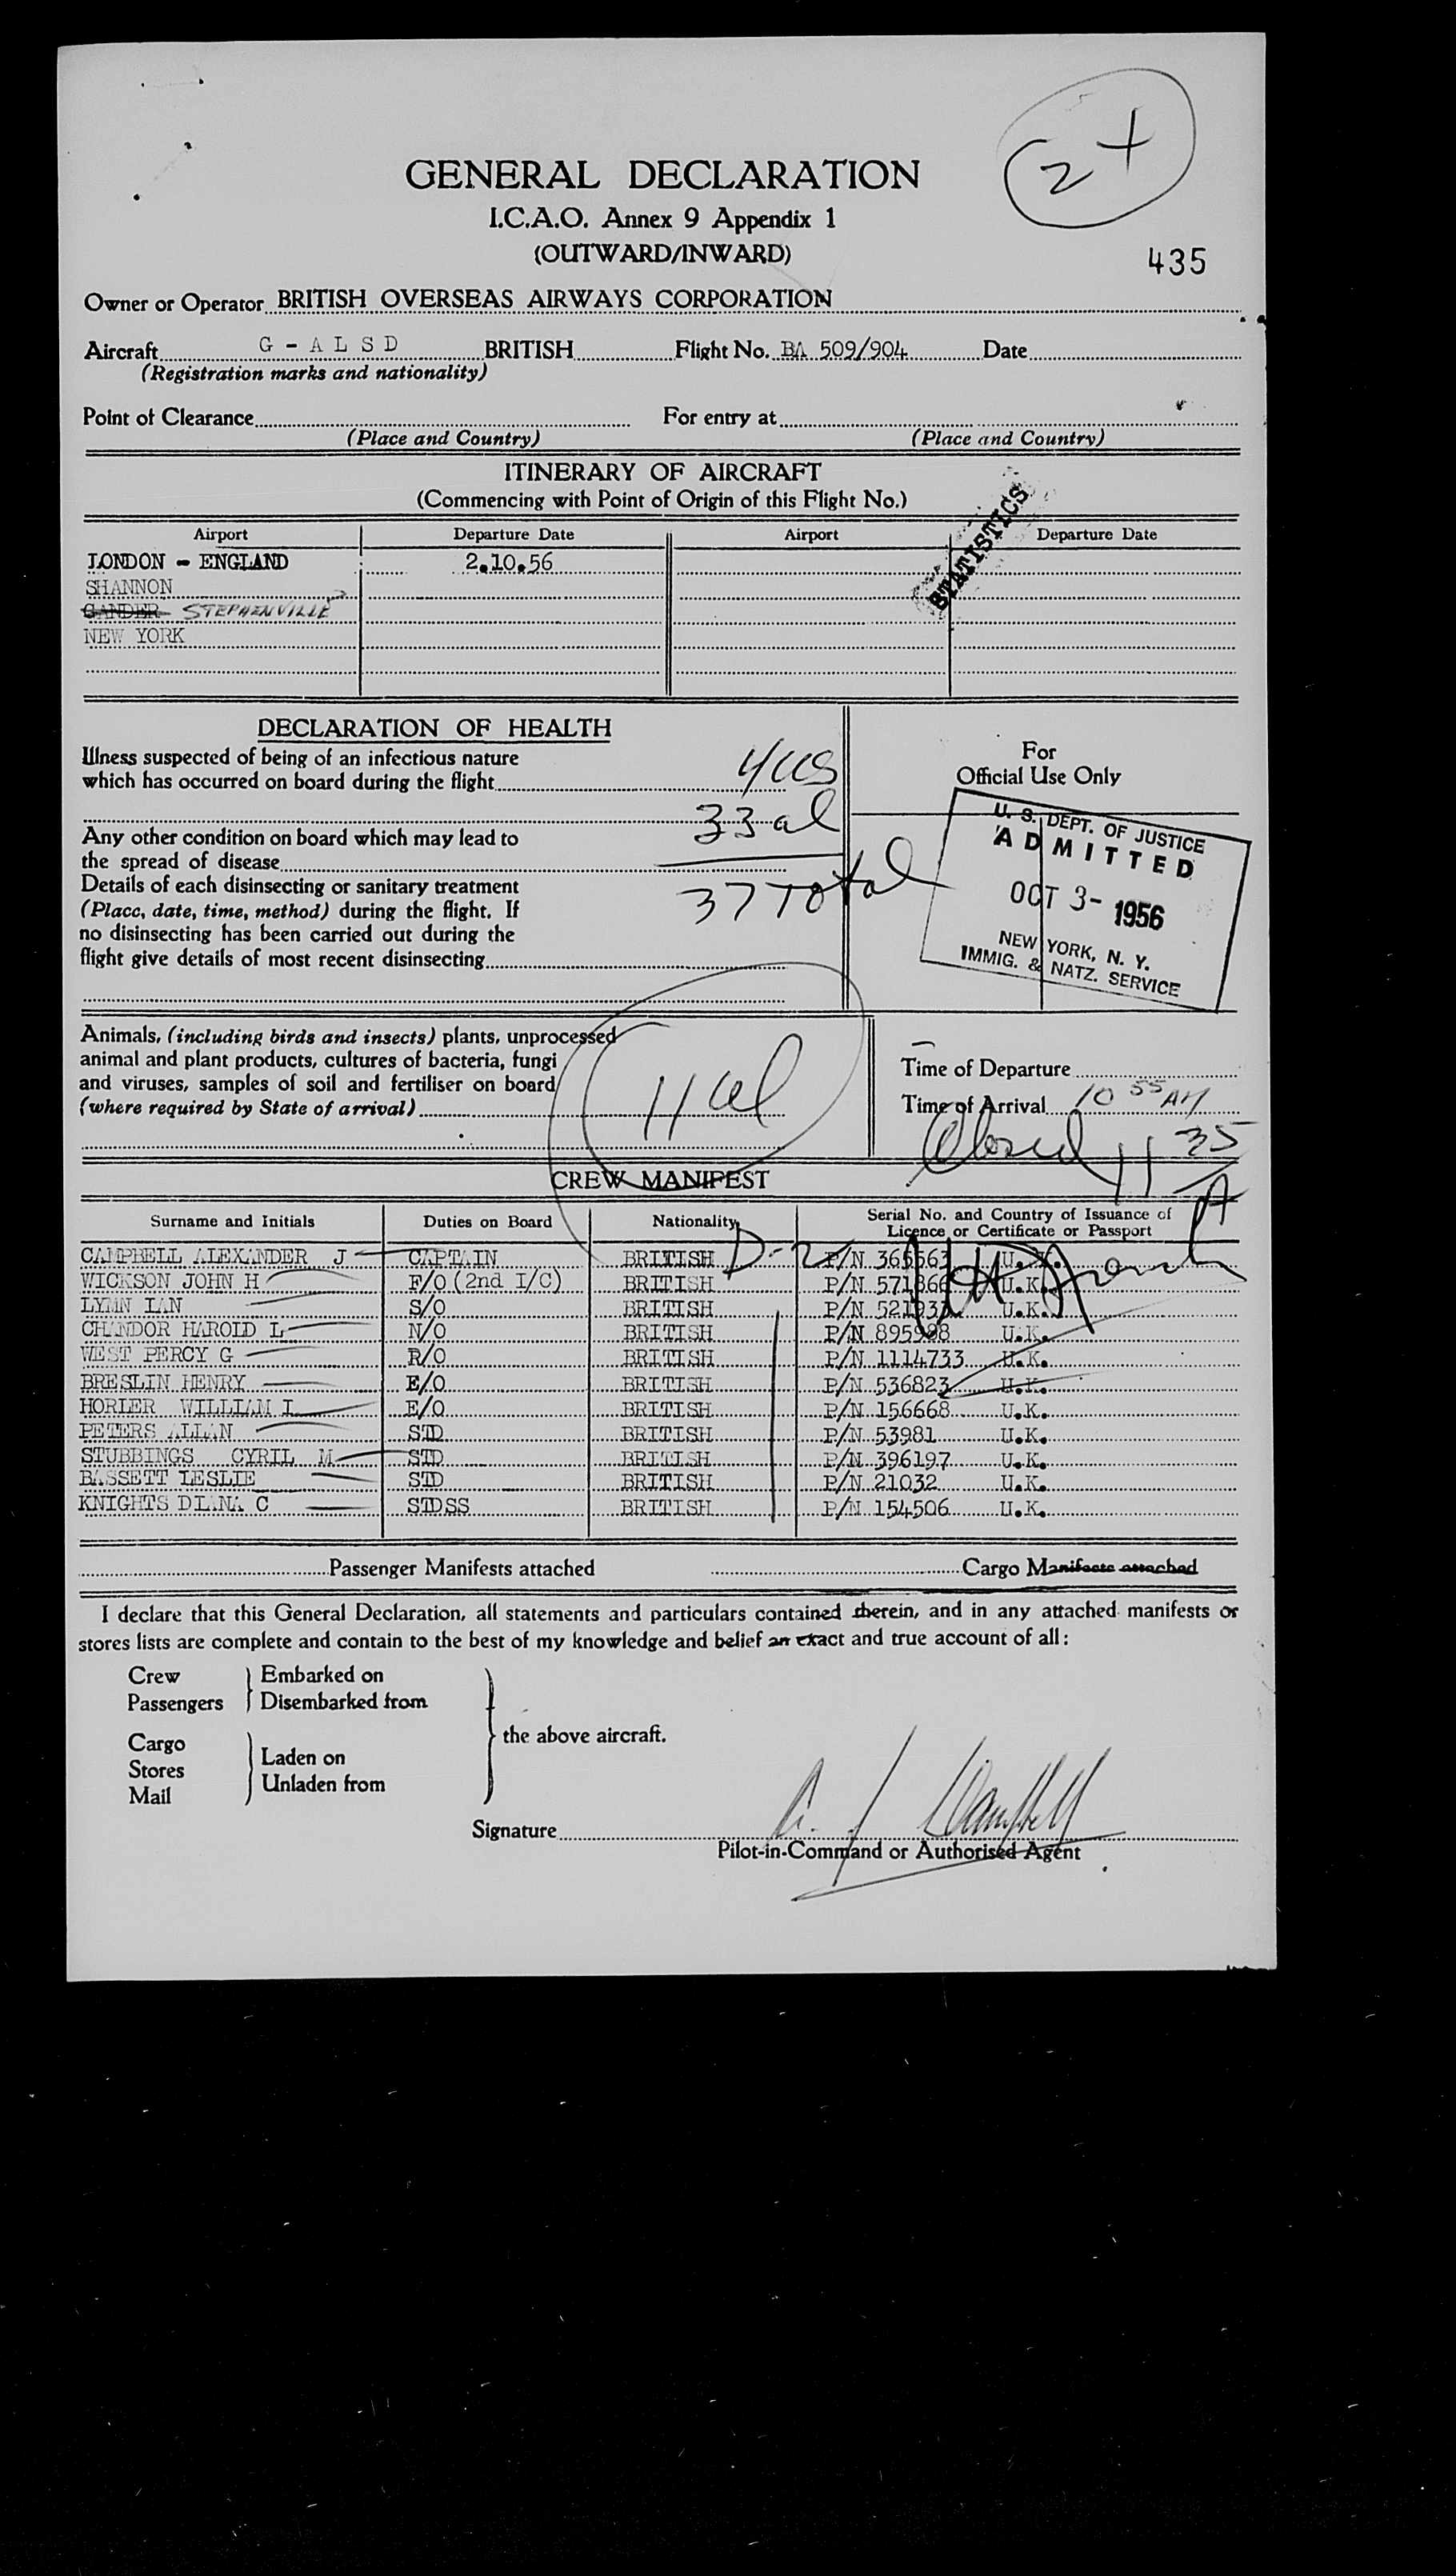 2+
GENERAL DECLARATION
I.C.A.O. Annex 9 Appendix 1
(OUTWARD/INWARD)
435
Owner or Operator BRITISH OVERSEAS AIRWAYS CORPORATION
Aircraft G - A L S D BRITISH Flight No. BA 509/904 Date
(Registration marks and nationality)
Point of Clearance For entry at
(Place and Country) (Place and Country)
ITINERARY OF AIRCRAFT
(Commencing with Point of Origin of this Flight No.)
STATISTICS
Airport Departure Date Airport Departure Date
LONDON - ENGLAND 2.10.56
SHANNON
GANDER STEPHENVILLE
NEW YORK
DECLARATION OF HEALTH
Illness suspected of being of an infectious nature
which has occurred on board during the flight
4 US
33 al
37 Total
Any other condition on board which may lead to
the spread of disease
Details of each disinsecting or sanitary treatment
(Place, date, time, method) during the flight. If
no disinsecting has been carried out during the
flight give details of most recent disinsecting
For
Official Use Only
U. S. DEPT. OF JUSTICE
ADMITTED
OCT 3- 1956
NEW YORK, N. Y.
IMMIG. & NATZ. SERVICE
Animals, (including birds and insects) plants, unprocessed
animal and plant products, cultures of bacteria, fungi
and viruses, samples of soil and fertiliser on board
(where required by State of arrival)
11 al
Time of Departure
Time of Arrival 10 55 AM
Closed 11 35 A
CREW MANIFEST
Surname and Initials Duties on Board Nationality Serial No. and Country of Issuance of
Licence or Certificate or Passport
D-2
CAMPBELL ALEXANDER J CAPTAIN BRITISH P/N 366563 U.K.
WICKSON JOHN H F/O (2nd I/C) BRITISH P/N 571866 U.K.
LYNN IAN S/O BRITISH P/N U.K.
CHANDOR HAROLD L N/O BRITISH P/N 895998 U.K.
WEST PERCY G R/O BRITISH P/N 1114733 U.K.
BRESLIN HENRY E/O BRITISH P/N 536823 U.K.
HORLER WILLIAM I E/O BRITISH P/N 156668 U.K.
PETERS ALLAN STD BRITISH P/N 53981 U.K.
STUBBINGS CYRIL M STD BRITISH P/N 396197 U.K.
BASSETT LESLIE STD BRITISH P/N 21032 U.K.
KNIGHTS DIANA C STDSS BRITISH P/N 154506 U.K.
Passenger Manifests attached Cargo Manifests attached
I declare that this General Declaration, all statements and particulars contained therein, and in any attached manifests or
stores lists are complete and contain to the best of my knowledge and belief an exact and true account of all:
Crew Embarked on
Passengers Disembarked from
the above aircraft.
Cargo
Stores Laden on
Mail Unladen from
Signature A. J Campbell
Pilot-in-Command or Authorised Agent